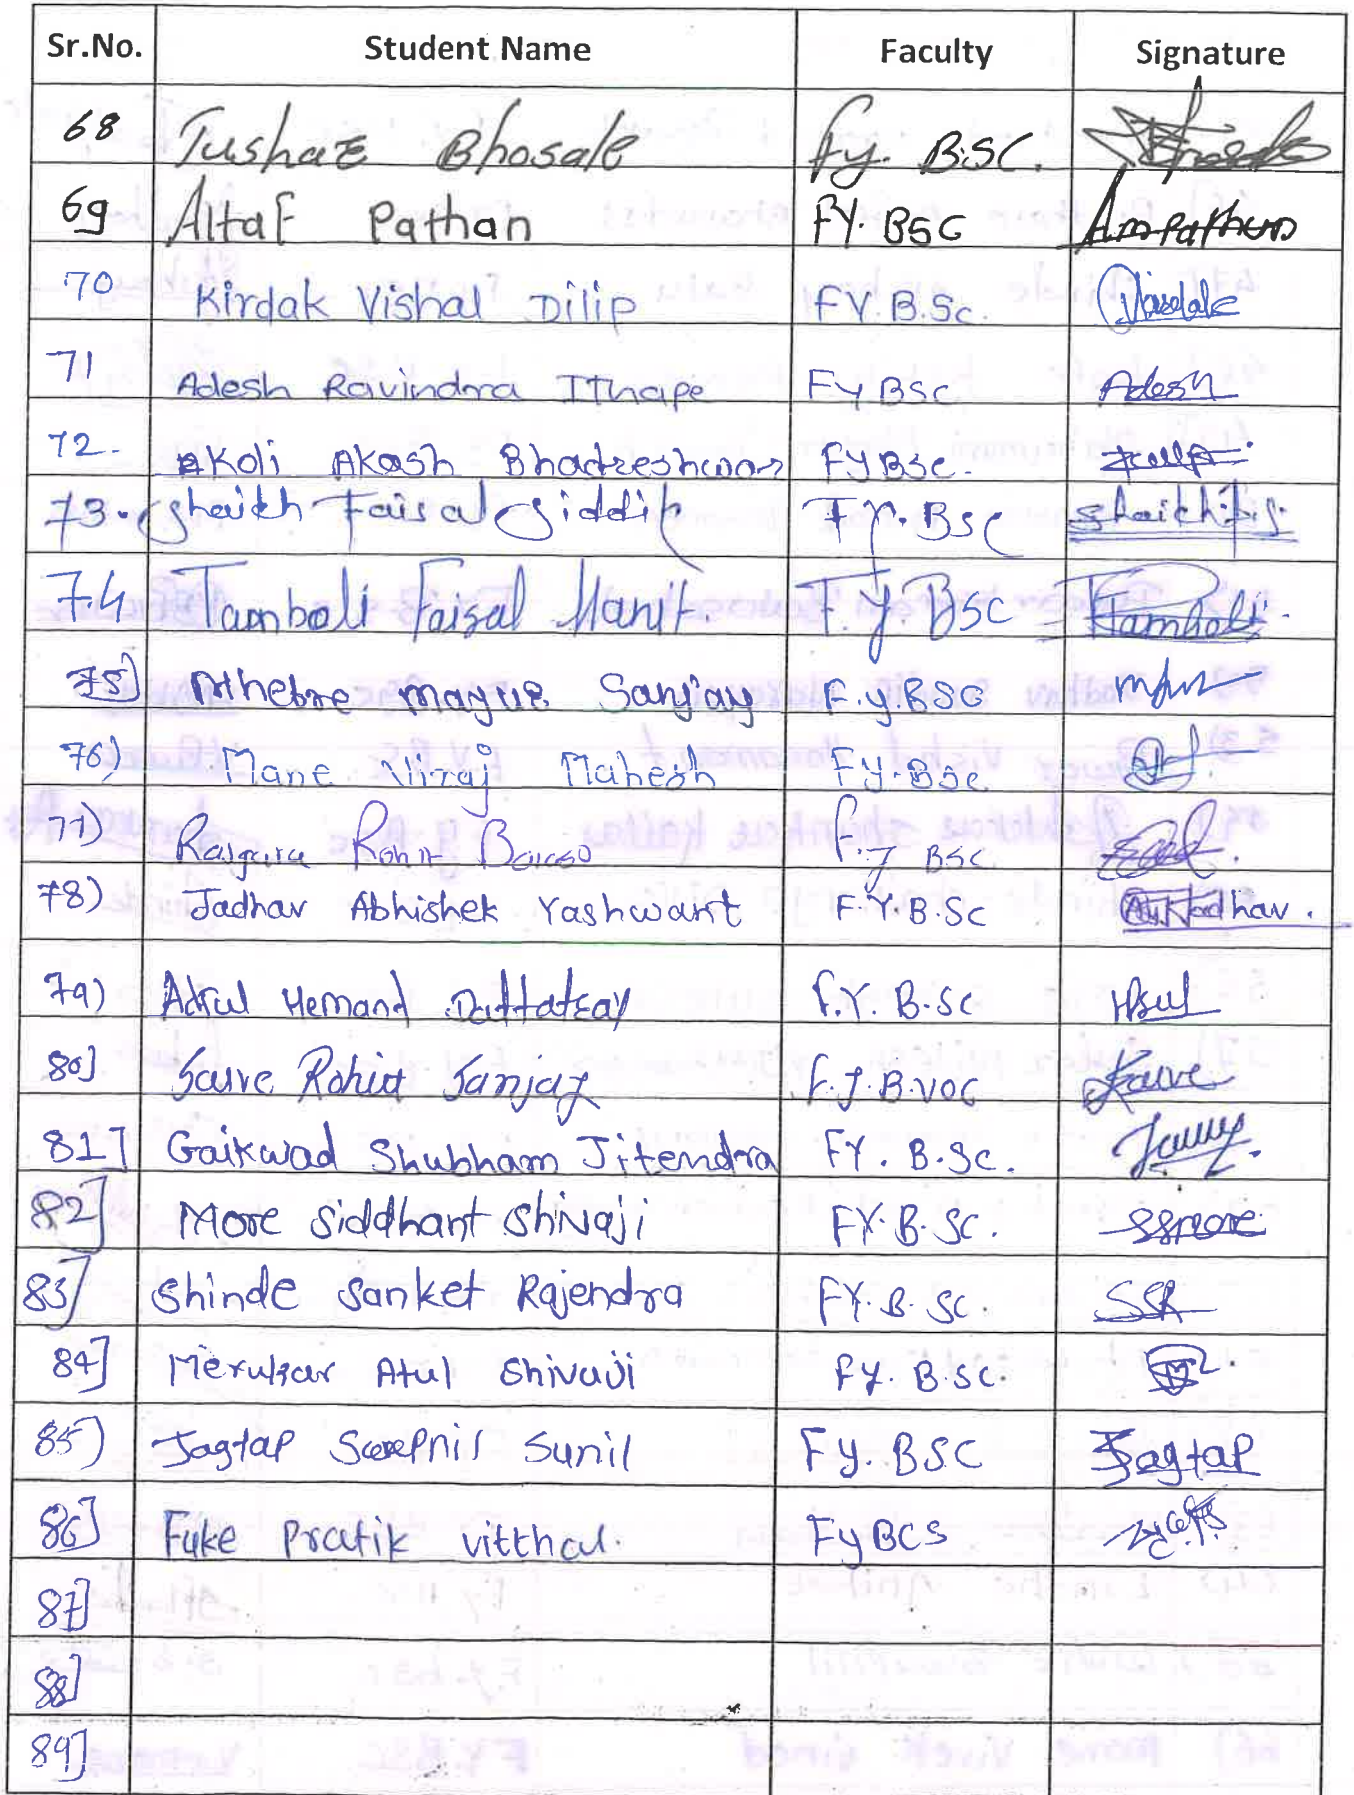 Sr.No. Student Name Faculty Signature
68 Tushar Bhosale Fy. B.SC.
69 Altaf Pathan FY. BSC Ampathan
70 Kirdak Vishal Dilip FY.B.Sc.
71 Adesh Ravindra Ithape FY BSC Adesh
72. Koli Akash Bhadreshwar FYBSc.
73. Shaikh Faisal Siddik F.Y. BSC
74 Tamboli Faisal Hanif. F.Y. BSC Tamboli
75) Athebre mayur Sanjay F.y.BSC
76) Mane Niraj Mahesh F.Y.BSC
77) Rohit F.y BSC
78) Jadhav Abhishek Yashwant F.Y.B.SC Jadhav.
79) Hemand Dattatray F.Y. B.SC
80] Rohit Sanjay F.Y.B.VOC
81] Gaikwad Shubham Jitendra FY. B.Sc.
82] More Siddhant Shivaji FY.B.SC. SSmore
83] Shinde Sanket Rajendra FY.B.SC. SSR
84] Merukar Atul Shivaji FY. B.SC.
85) Jagtap Swapnil Sunil Fy. BSC Jagtap
86] Fuke Pratik vitthal. FyBCS
87]
88]
89]